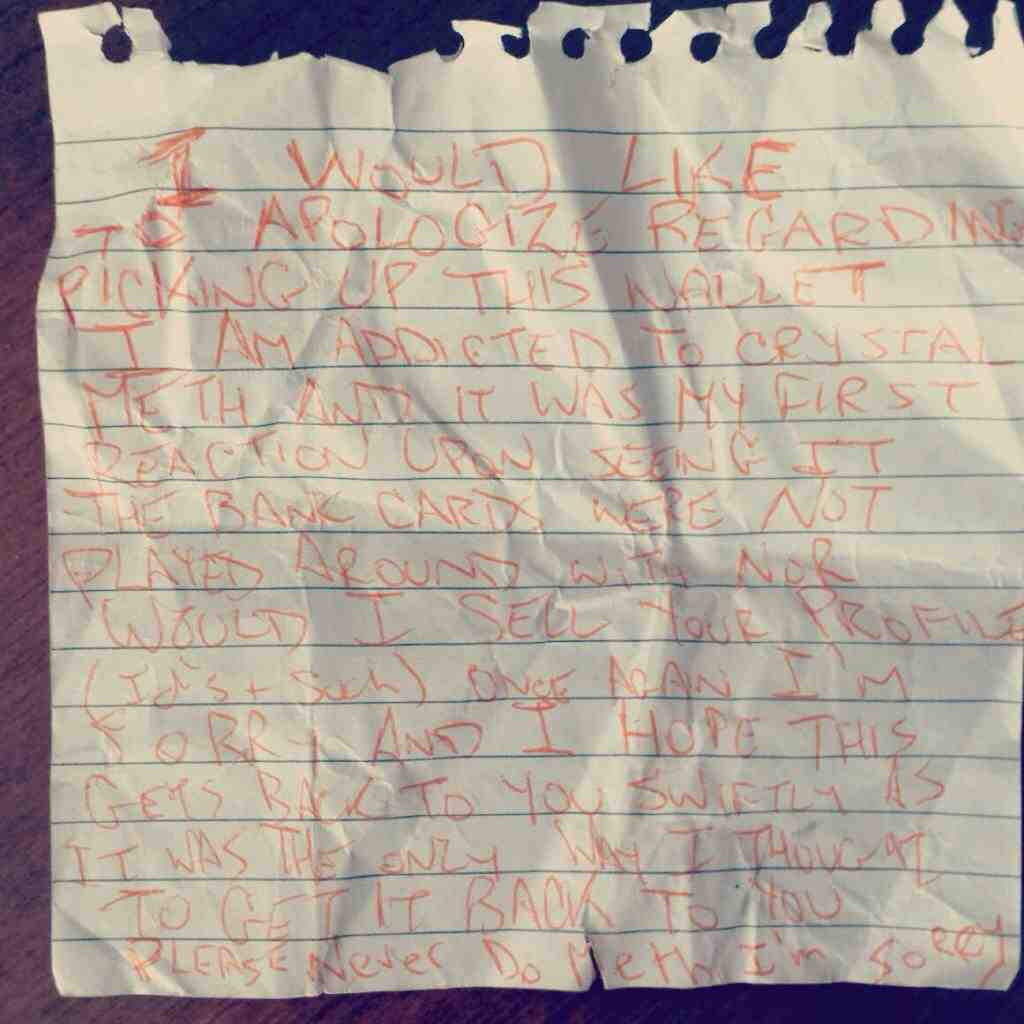 I WOULD LIKE
TO APOLOGIZE REGARDING
PICKING UP THIS WALLET
I AM ADDICTED TO CRYSTAL
METH AND IT WAS MY FIRST
REACTION UPON SEEING IT
THE BANK CARDS WERE NOT
PLAYED AROUND WITH NOR
WOULD I SELL YOUR PROFILE
(Id's + Such) ONCE AGAIN I'M
SORRY AND I HOPE THIS
GETS BACK TO YOU SWIFTLY AS
IT WAS THE ONLY WAY I THOUGHT
TO GET IT BACK TO YOU
PLEASE Never Do Meth I'm Sorry